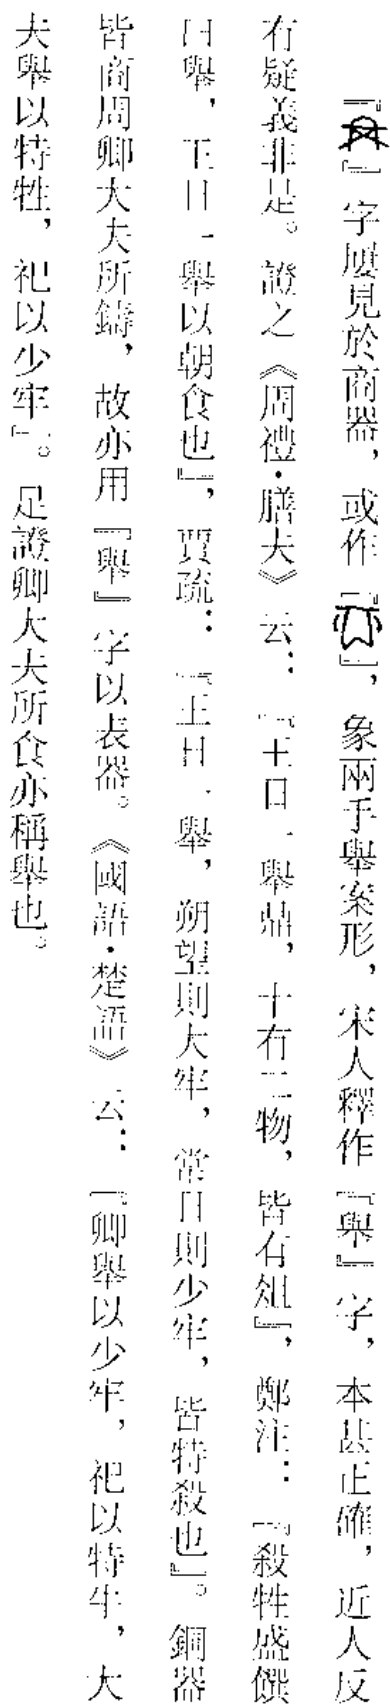 『』字屢見於商器，或作『』，象兩手舉案形，宋人釋作『舉』字，本甚正確，近人反
有疑義非是。證之《周禮·膳夫》云：『王日一舉鼎，十有二物，皆有俎』，鄭注：『殺牲盛饌
曰舉，王日一舉以朝食也』，賈疏：『王日一舉，朔望則大牢，常日則少牢，皆特殺也』。銅器
皆商周卿大夫所鑄，故亦用『舉』字以表器。《國語·楚語》云：『卿舉以少牢，祀以特牛，大
夫舉以特牲，祀以少牢』。足證卿大夫所食亦稱舉也。